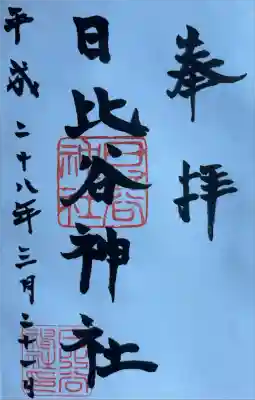 奉拝
日比谷神社
平成二十八年三月二十一日